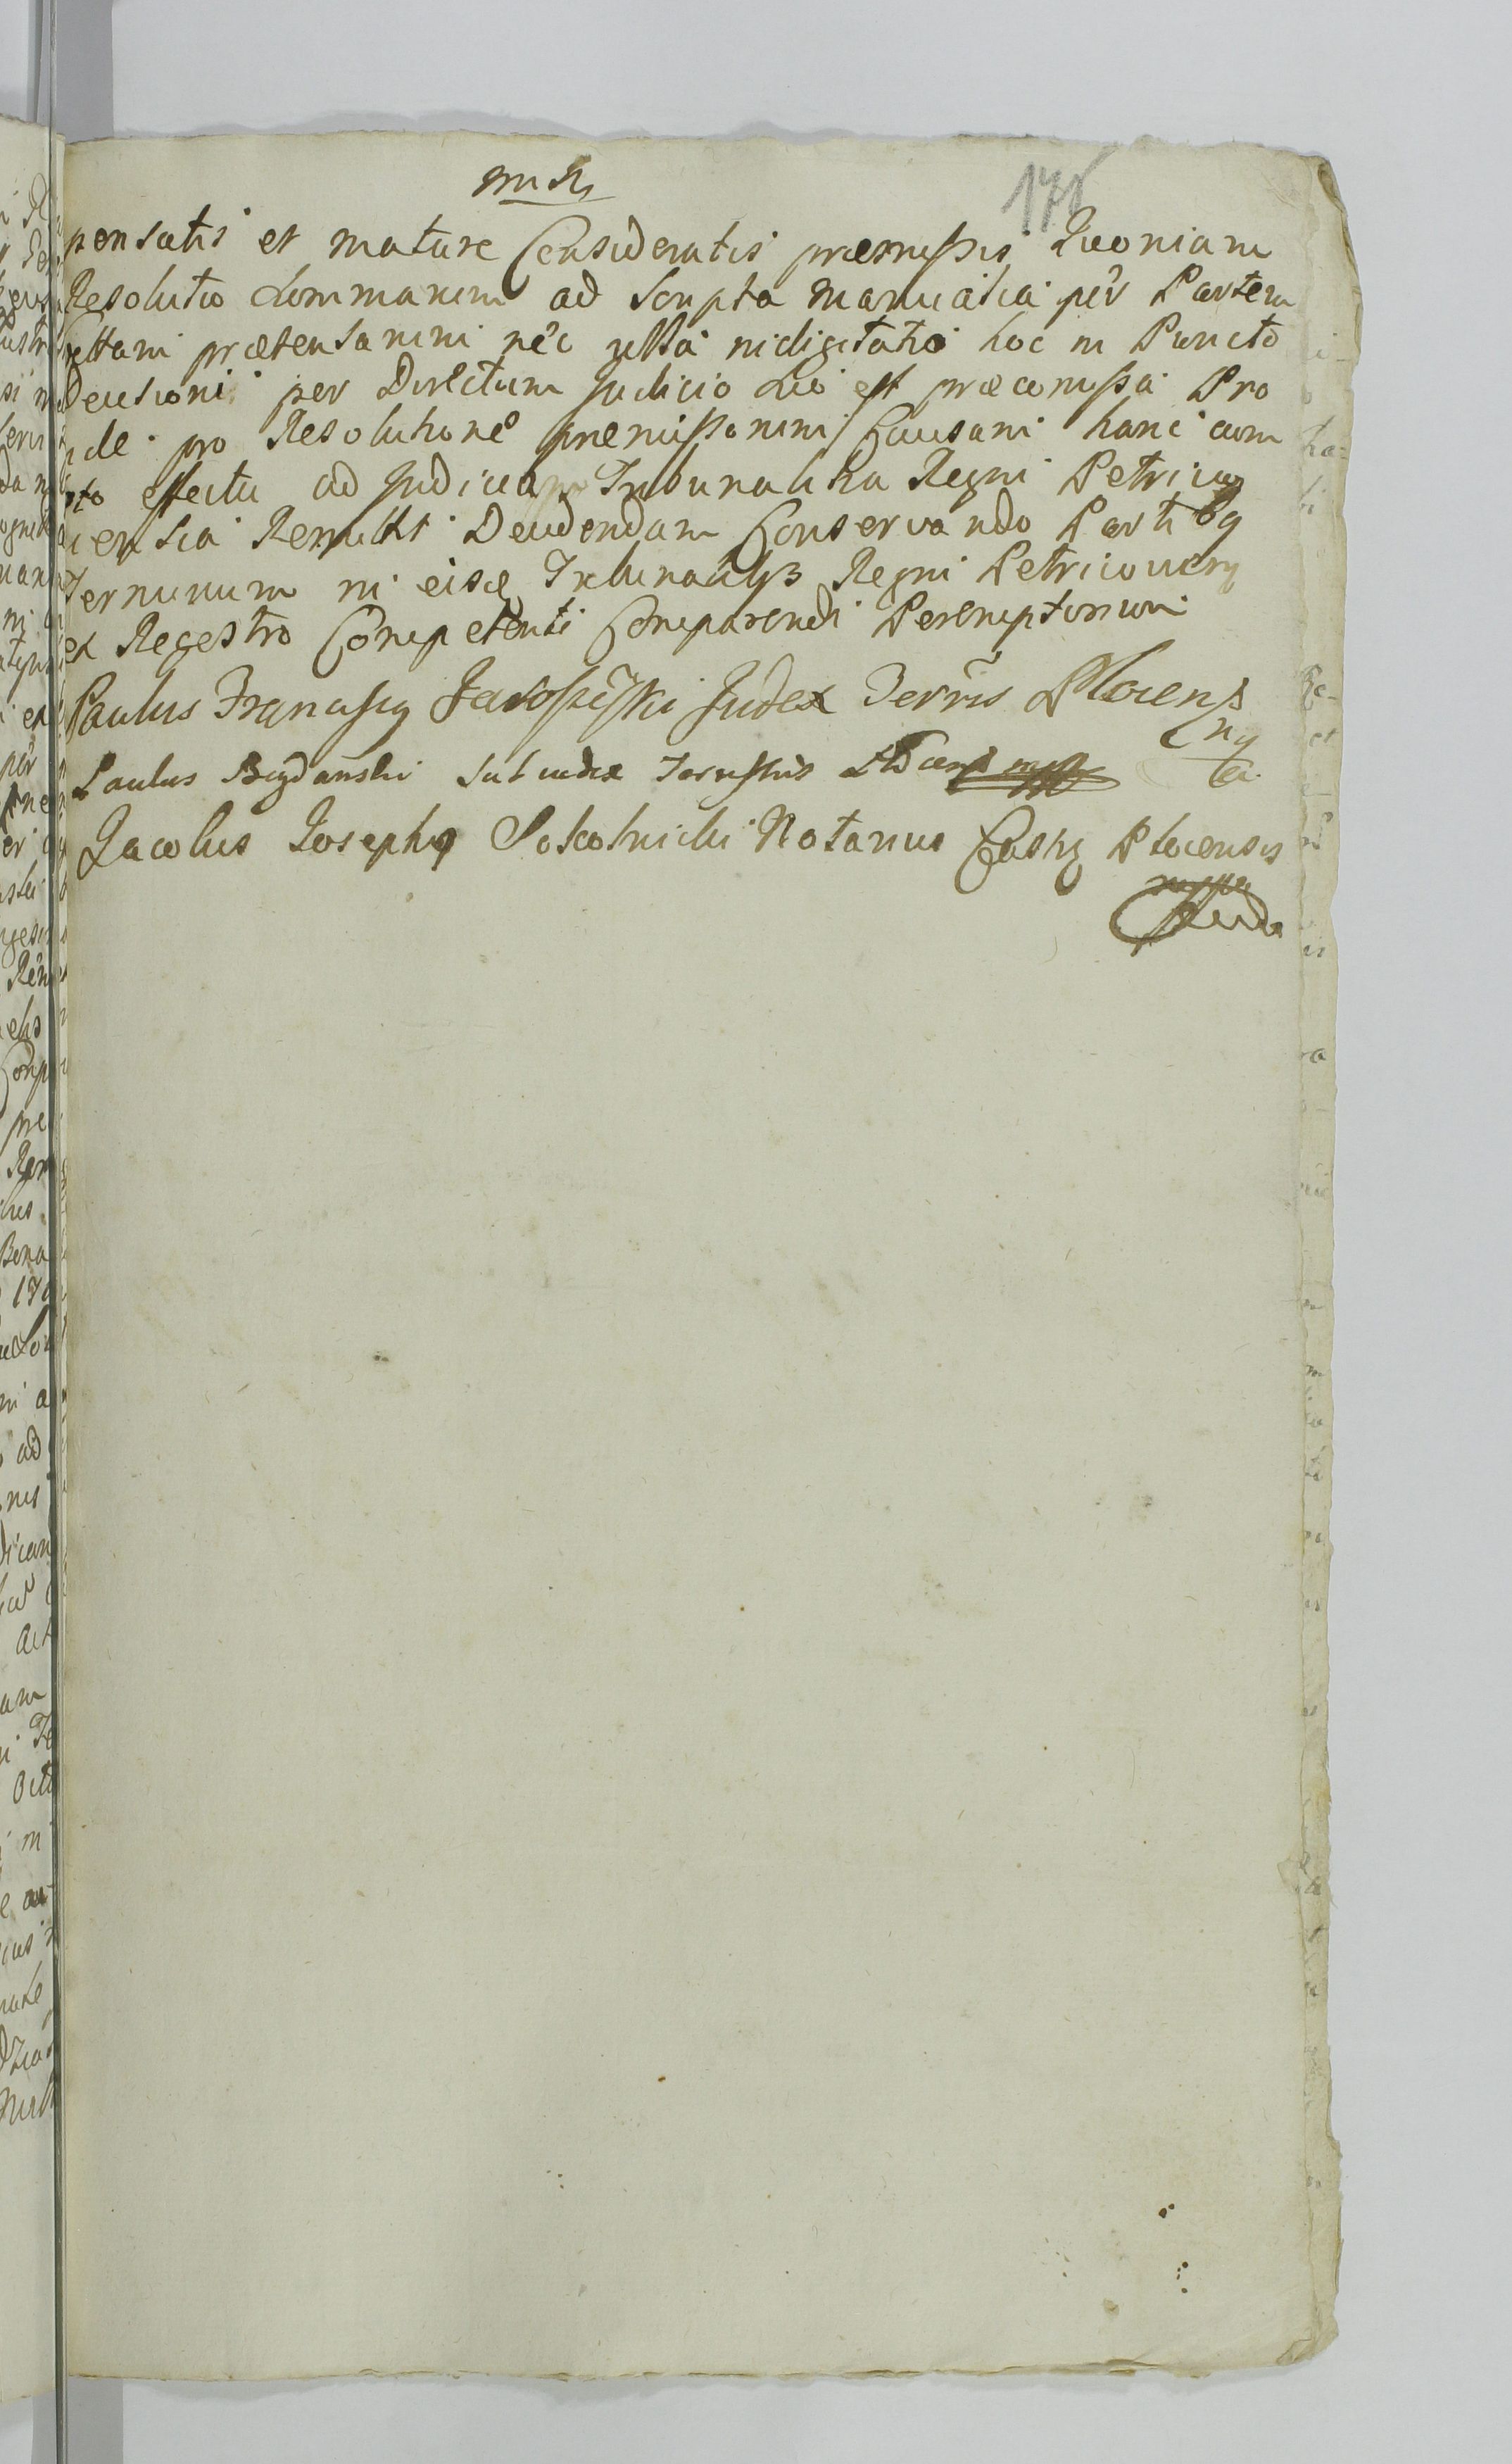 175
pensatis et mature Consideratis præmissis Quoniam
Resolutio Summarum ad Scripta Manualia per Partem
prætensarum nec ulla hoc in Puncto
Decisioni per Directum Judicio Suo est præcomissa Pro
inde pro Resolutione præmissorum Causam hanc cum
toto effectu ad Judicia Tribunalitia Regni Petrico
viensia Remittit Decidendam Conservando Partibg
Terminum in eisd Tribunalybs Regni Petricovieng
ex Regestro Competenti Comparendi Peremptorium
Paulus Franciscg Judex Terris Plocens
mp
Paulus Bogdański Subiudex Terrestris Plocens mpp
Jacobus Josephg Sokolnicki Notarius Castrs Plocensis
mppa